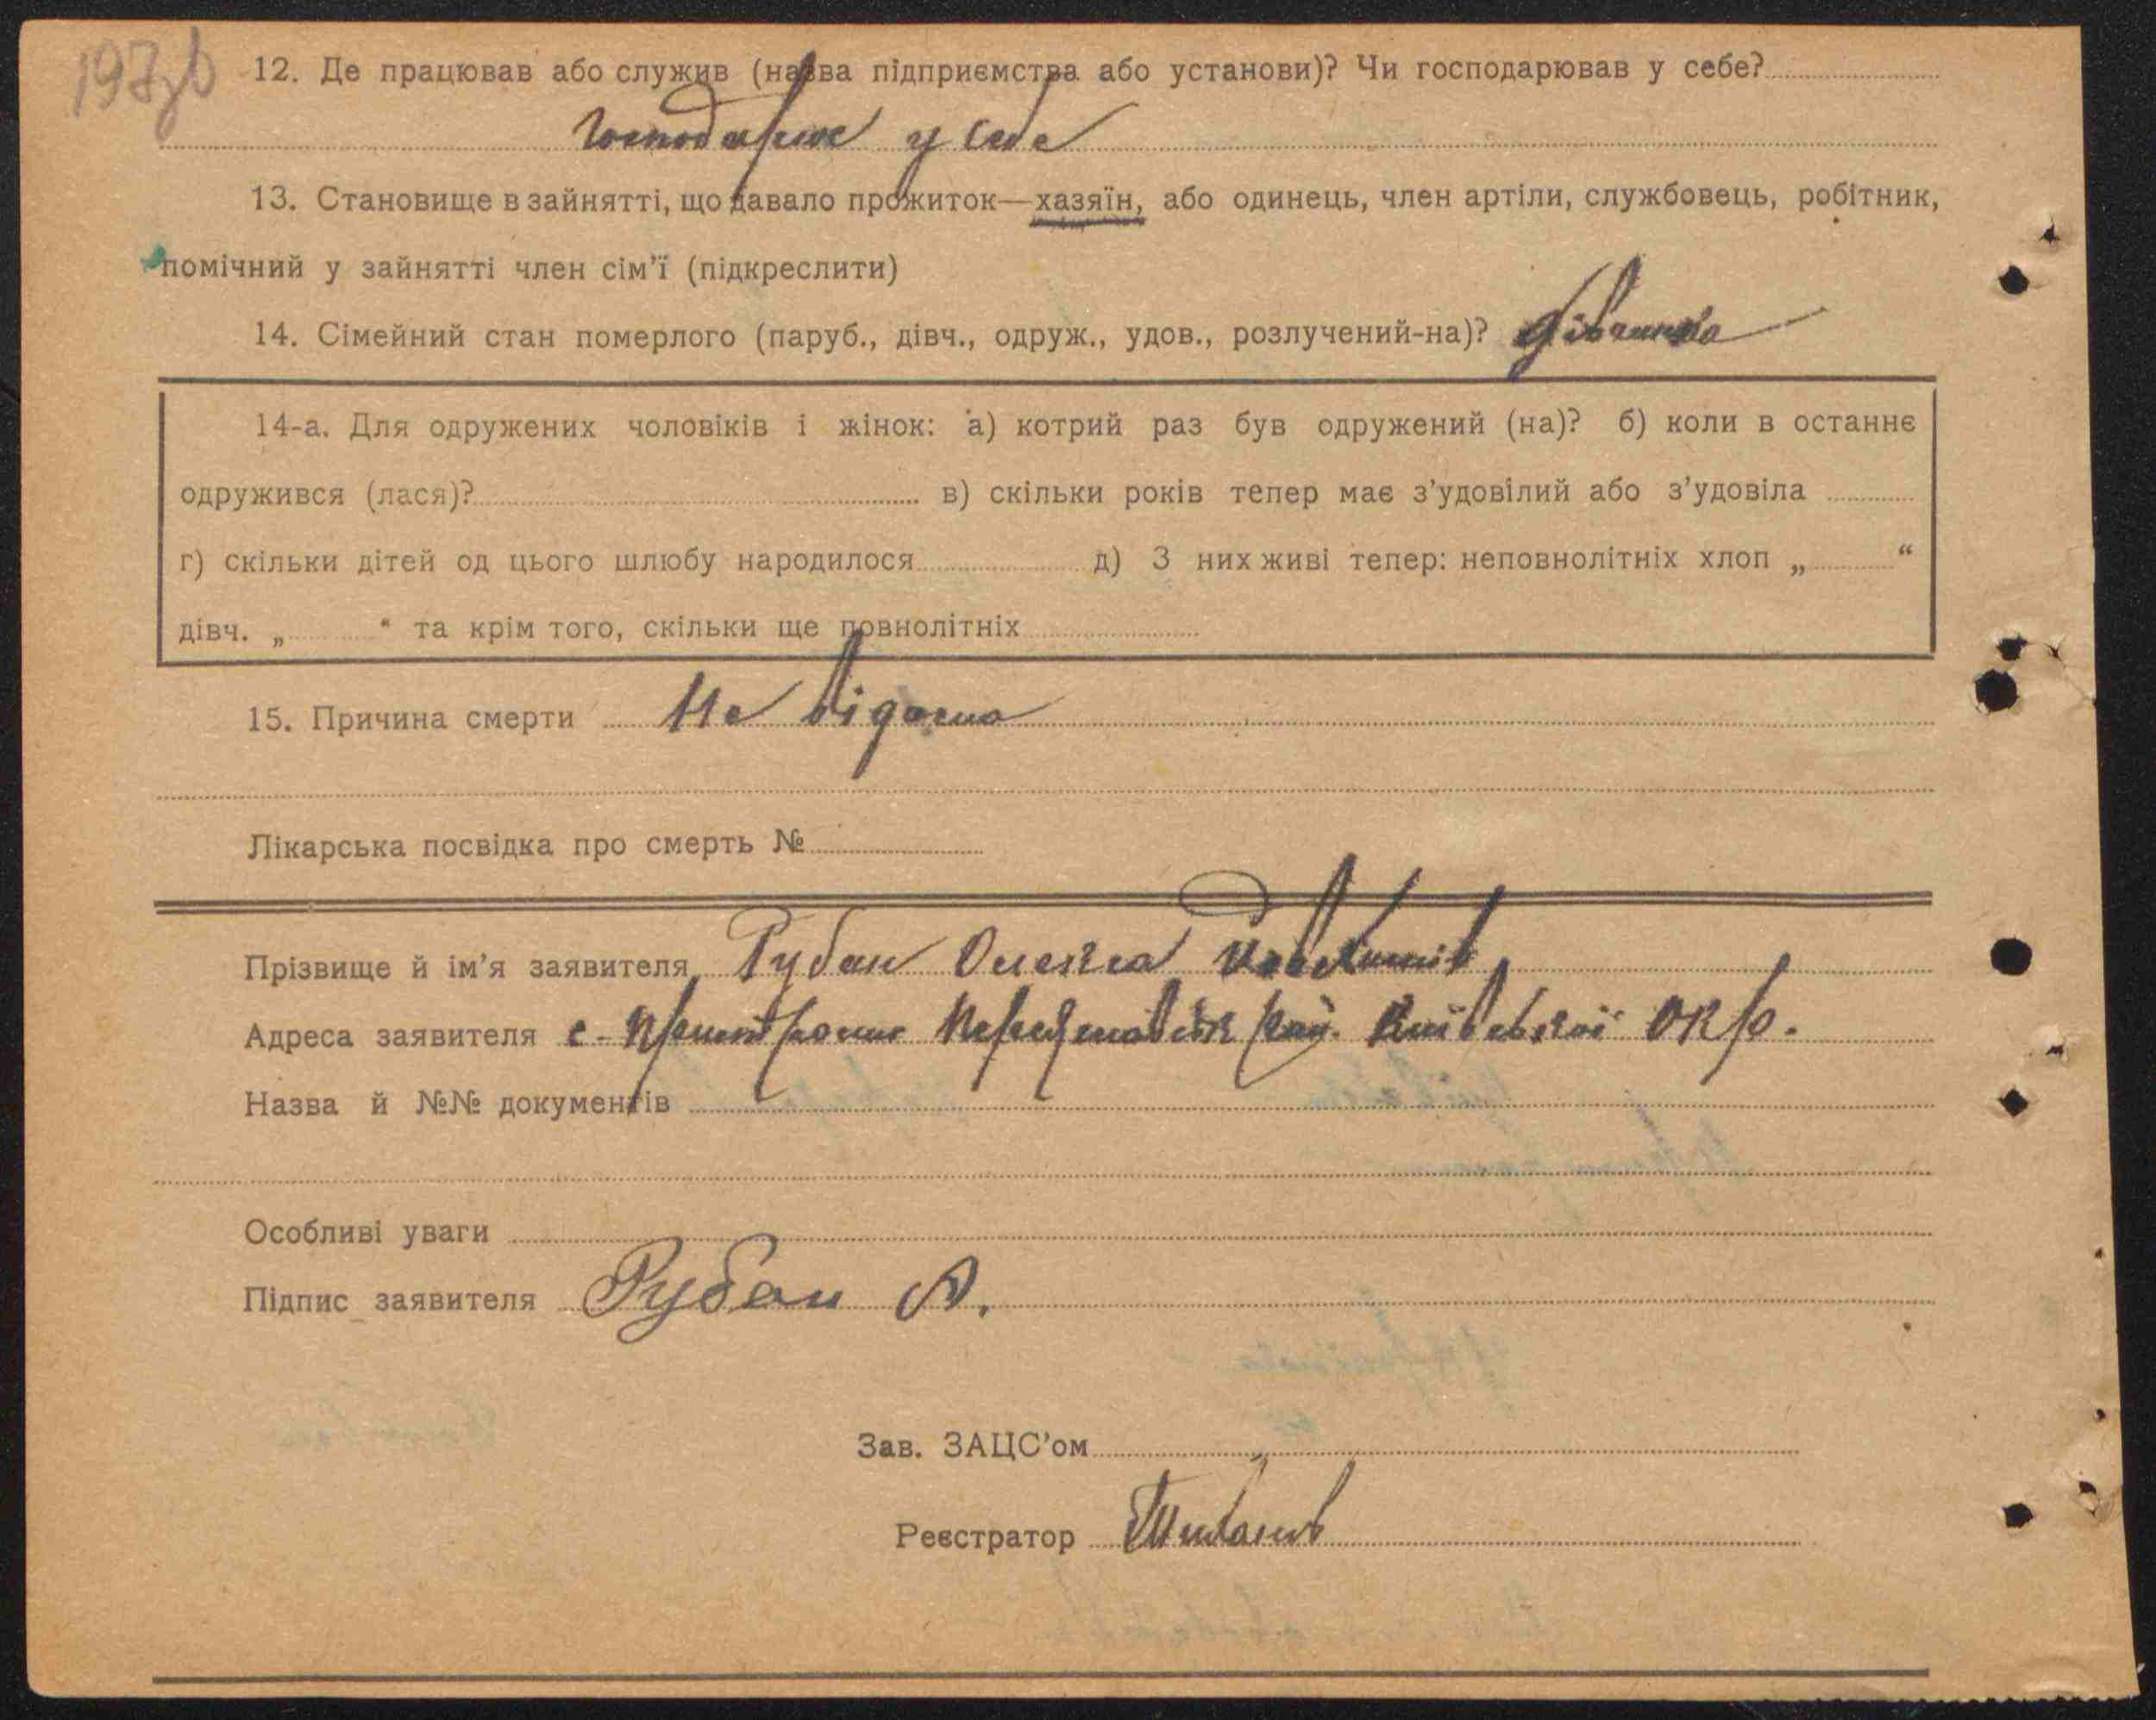 197зв
12. Де працював або служив (назва підприємства або установи)? Чи господарював у себе?
Господарює у себе
13. Становище в зайнятті, що давало прожиток—хазяїн, або одинець, член артіли, службовець, робітник,
помічний у зайнятті член сім’ї (підкреслити)
14. Сімейний стан померлого (паруб., дівч., одруж., удов., розлучений-на)? Дівчинка
14-а. Для одружених чоловіків і жінок: а) котрий раз був одружений (на)? б) коли в останнє
одружився (лася)? в) скільки років тепер має з’удовілий або з’удовіла
г) скільки дітей од цього шлюбу народилося д) З них живі тепер: неповнолітніх хлоп „ “
дівч. „ “ та крім того, скільки ще повнолітніх
15. Причина смерти Не відома
Лікарська посвідка про смерть №
Прізвище й ім’я заявителя Рубан Олекса
Адреса заявителя с. рай. Київської Окр.
Назва й №№ документів
Особливі уваги
Підпис заявителя Рубан А.
Зав. ЗАЦС’ом
Реєстратор